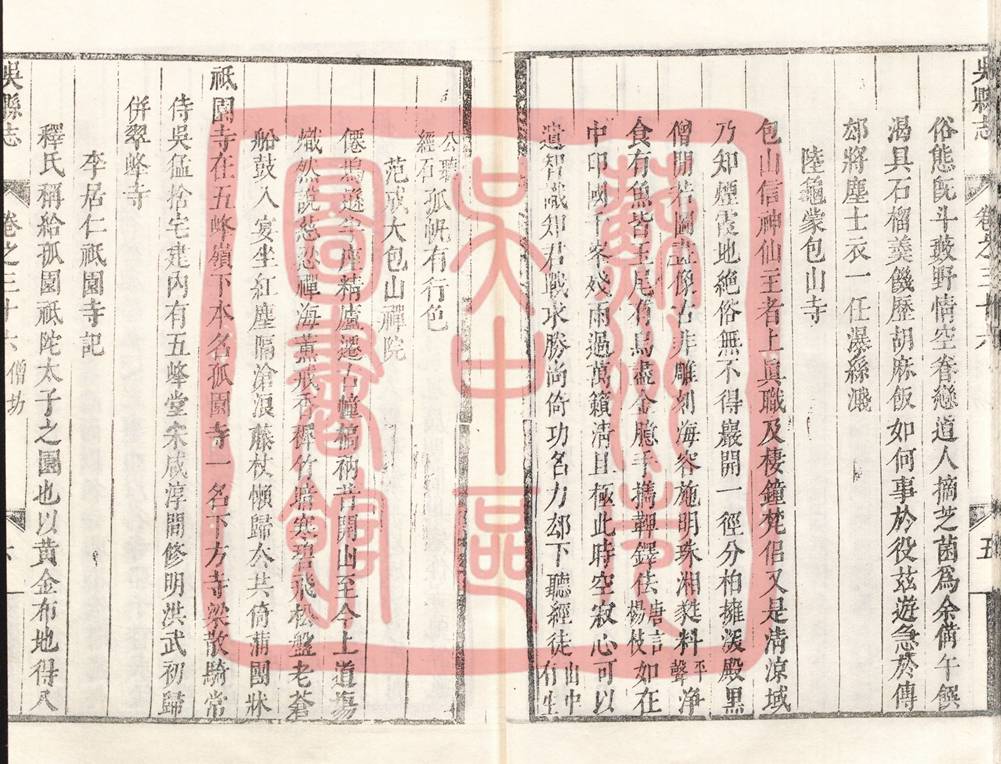 吳縣志 卷之三十六 五
俗態旣斗藪野情空眷戀道人摘芝菌為余備午饌
渴具石榴羹饑愜胡麻飯如何事於役茲遊急於傳
却將塵土衣一任瀑絲濺
陸龜蒙包山寺
包山信神仙主者上真職及棲鐘梵侶又是清涼域
乃知煙霞地絕俗無不得巖開一徑分柏擁深殿黑
僧閒若圖畫像古非雕刻海客施明珠湘蕤料平聲淨
食有魚皆玉尾有烏盡金臆手攜鞞鐸佉唐言楊枝如在
中印國千峯殘雨過萬籟清且極此時空寂心可以
遺智識知君戰求勝尚倚功名力却下聽經徒山中有生
公聽經石孤帆有行色
范成大包山禪院
精廬遷古幢開山至今上道場
熾然說忍禪海薰戒香稱竹暗寒碧飛松盤老蒼
船鼓入坐紅塵隔滄浪藤杖懶歸去共倚蒲團牀
祇園寺在五峰嶺下本名孤園寺一名下方寺梁散騎常
侍吳猛捨宅建內有五峰堂宋咸淳間修明洪武初歸
併翠峰寺
李居仁祇園寺記
釋氏稱給孤園祇陀太子之園也以黃金布地得人
吳縣志 卷之三十六 僧坊 六
蘇州市
吳中區
圖書館